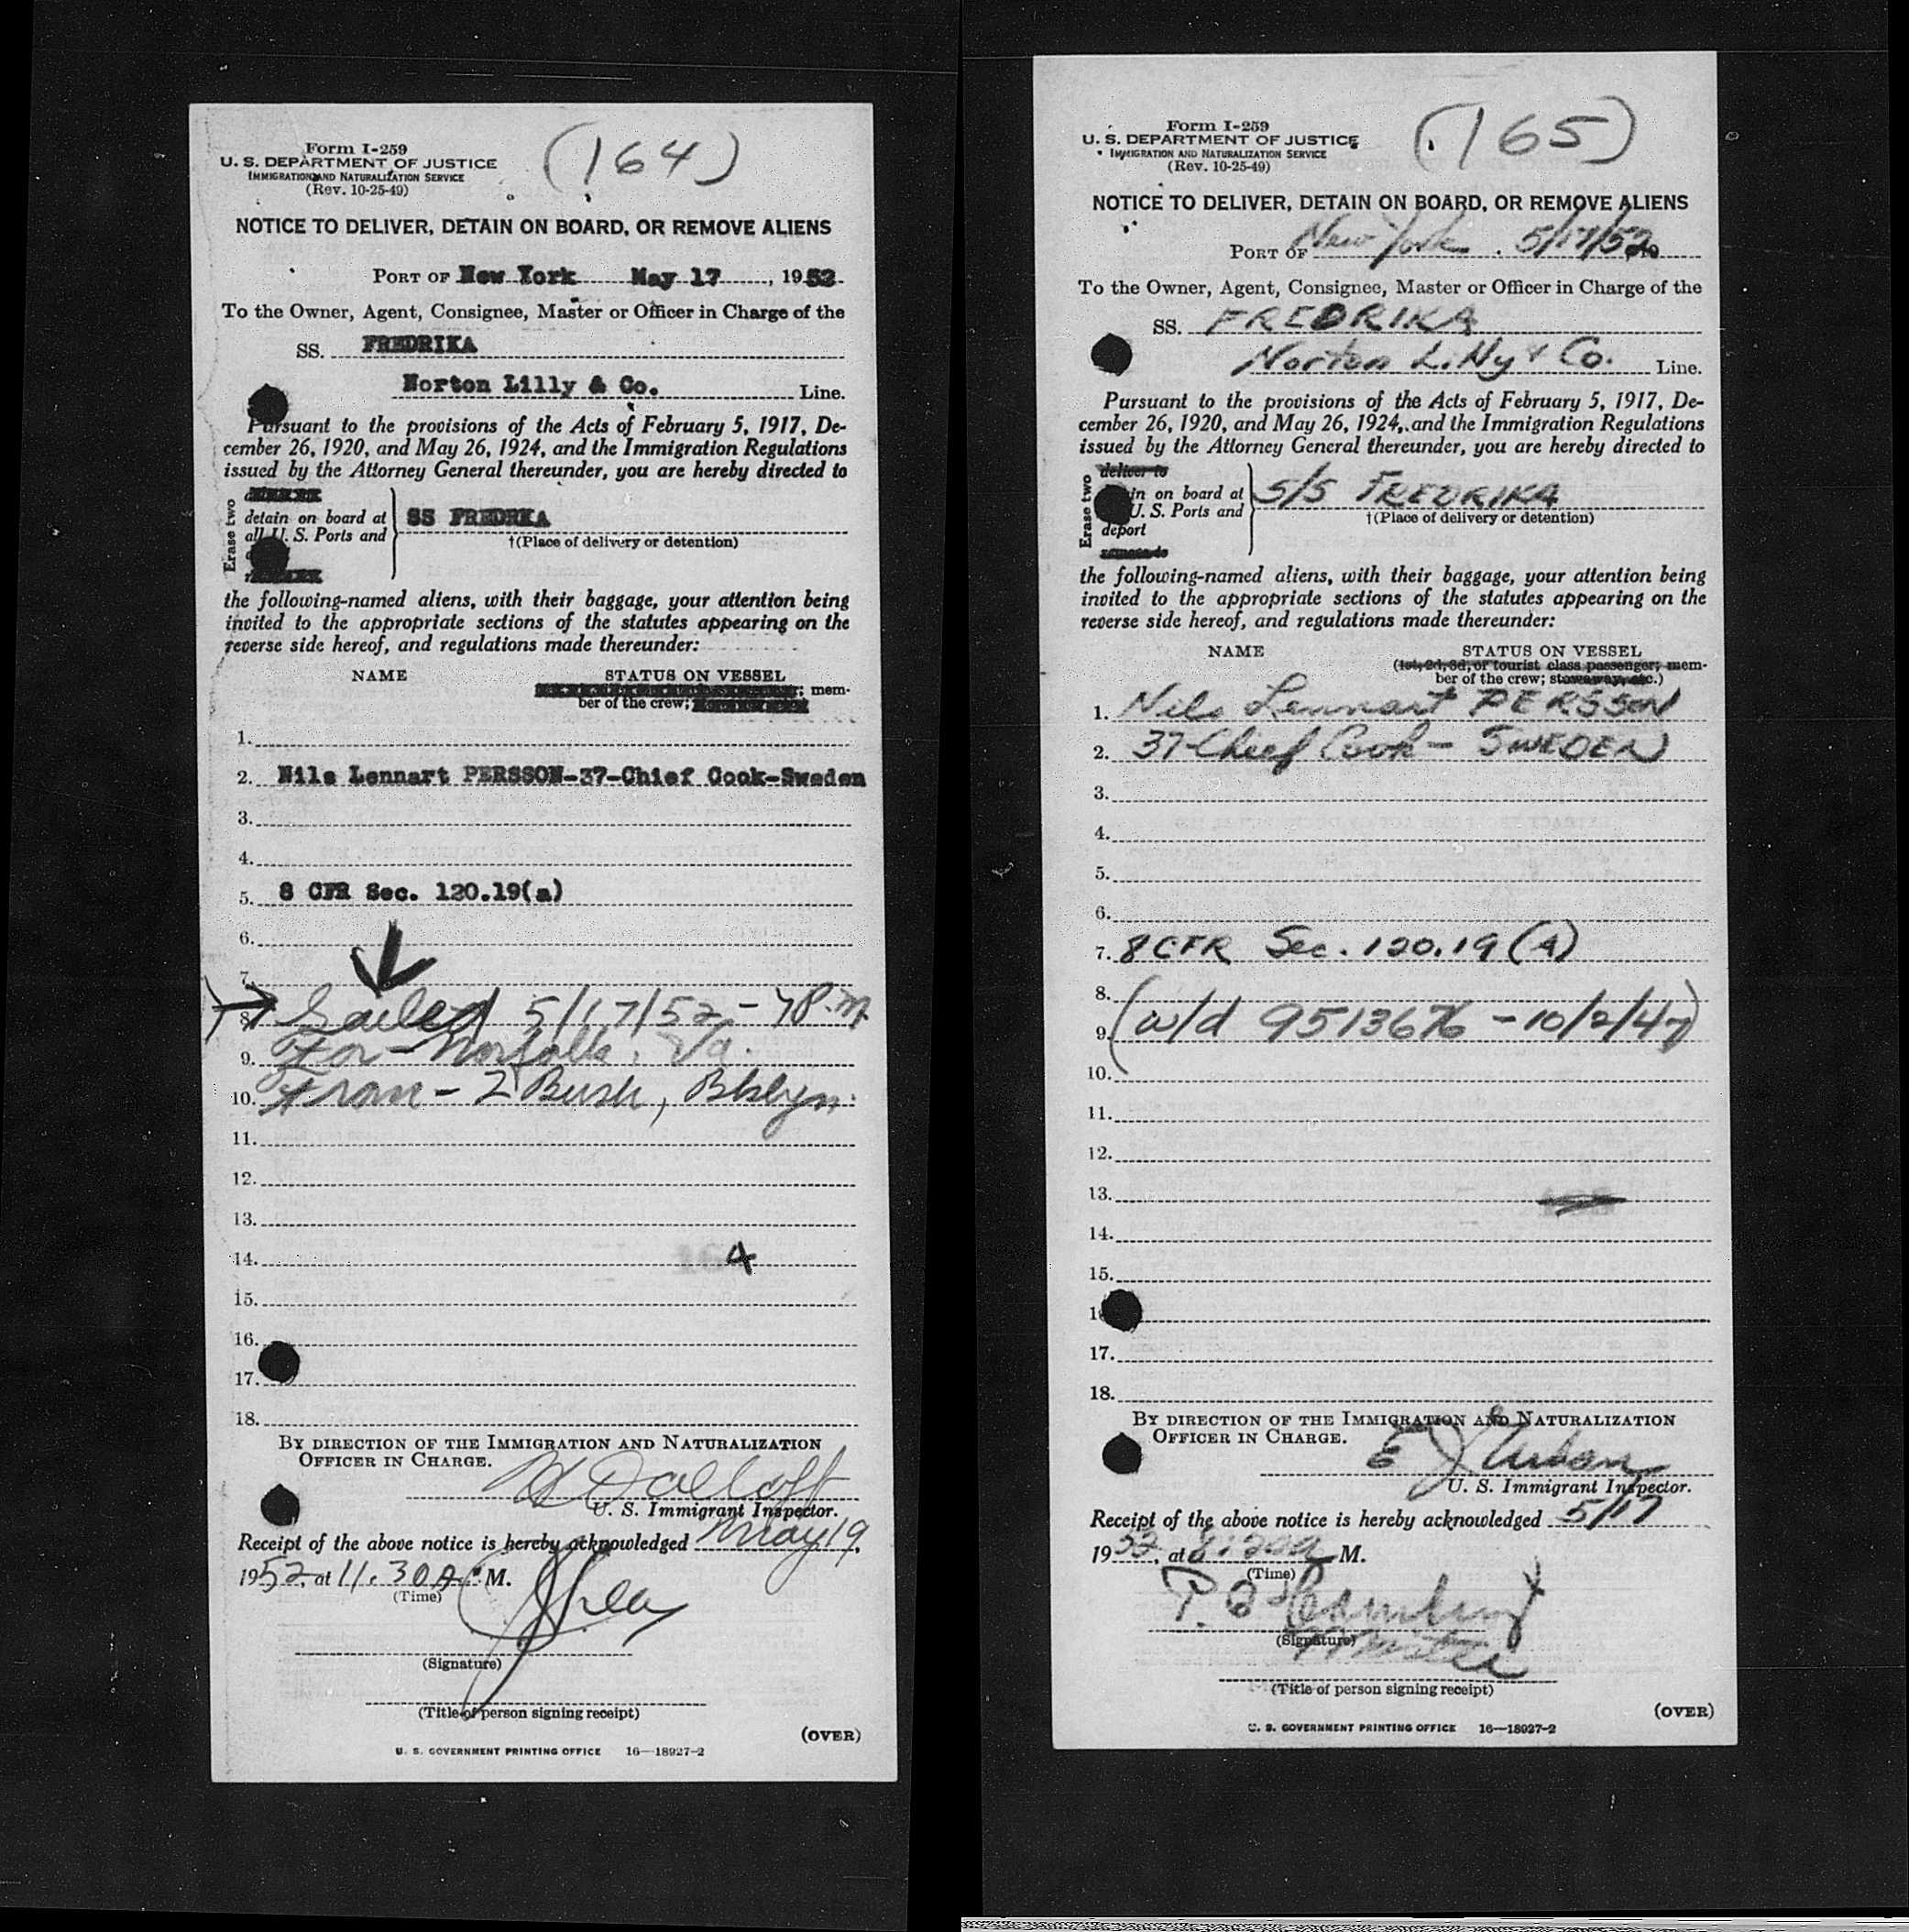 (164)
Form I-259
U. S. DEPARTMENT OF JUSTICE
IMMIGRATION AND NATURALIZATION SERVICE
(Rev. 10-25-49)
NOTICE TO DELIVER, DETAIN ON BOARD, OR REMOVE ALIENS
PORT OF New York May 17, 1952
To the Owner, Agent, Consignee, Master or Officer in Charge of the
SS. FREDRIKA
Norton Lilly & Co. Line.
Pursuant to the provisions of the Acts of February 5, 1917, De-
cember 26, 1920, and May 26, 1924, and the Immigration Regulations
issued by the Attorney General thereunder, you are hereby directed to
Erase two
detain on board at
all U. S. Ports and
SS FREDRKA
†(Place of delivery or detention)
the following-named aliens, with their baggage, your attention being
invited to the appropriate sections of the statutes appearing on the
reverse side hereof, and regulations made thereunder:
NAME STATUS ON VESSEL
; mem-
ber of the crew;
1.
2. Nils Lennart PERSSON-37-Chief Cook-Sweden
3.
4.
5. 8 CFR Sec. 120.19(a)
6.
7.
8. Sailed 5/17/52 - 7P.m.
9. For - Norfolk, Va.
10. From - 2 Bush, Bklyn.
11.
12.
13.
14. 164
15.
16.
17.
18.
BY DIRECTION OF THE IMMIGRATION AND NATURALIZATION
OFFICER IN CHARGE.
U. S. Immigrant Inspector.
Receipt of the above notice is hereby acknowledged May 19,
1952, at 11.30 A. M.
(Time)
(Signature)
(Title of person signing receipt)
(OVER)
U. S. GOVERNMENT PRINTING OFFICE 16—18927-2
(165)
Form I-259
U. S. DEPARTMENT OF JUSTICE
IMMIGRATION AND NATURALIZATION SERVICE
(Rev. 10-25-49)
NOTICE TO DELIVER, DETAIN ON BOARD, OR REMOVE ALIENS
PORT OF New York, 5/17/52
To the Owner, Agent, Consignee, Master or Officer in Charge of the
SS. FREDRIKA
Norton Lilly & Co. Line.
Pursuant to the provisions of the Acts of February 5, 1917, De-
cember 26, 1920, and May 26, 1924, and the Immigration Regulations
issued by the Attorney General thereunder, you are hereby directed to
Erase two
deliver to
in on board at
U. S. Ports and
deport
remove to
S/S FREDRIKA
†(Place of delivery or detention)
the following-named aliens, with their baggage, your attention being
invited to the appropriate sections of the statutes appearing on the
reverse side hereof, and regulations made thereunder:
NAME STATUS ON VESSEL
(1st, 2d, 3d, or tourist class passenger; mem-
ber of the crew; stowaway, etc.)
1. Nils Lennart PERSSON
2. 37-Chief Cook - SWEDEN
3.
4.
5.
6.
7. 8 CFR Sec. 120.19 (A)
8.
9. (w/d 9513676 - 10/2/47)
10.
11.
12.
13.
14.
15.
16
17.
18.
BY DIRECTION OF THE IMMIGRATION AND NATURALIZATION
OFFICER IN CHARGE.
E J Urban
U. S. Immigrant Inspector.
Receipt of the above notice is hereby acknowledged 5/17
1952, at M.
(Time)
(Signature)
Master
(Title of person signing receipt)
(OVER)
U. S. GOVERNMENT PRINTING OFFICE 16—18927-2